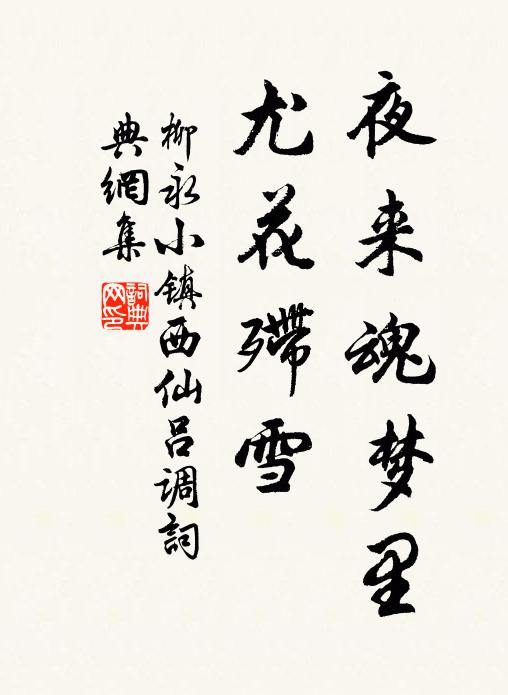 夜来魂梦里
尤花殢雪
柳永小镇西仙吕调詞
典網集
詞典
网印